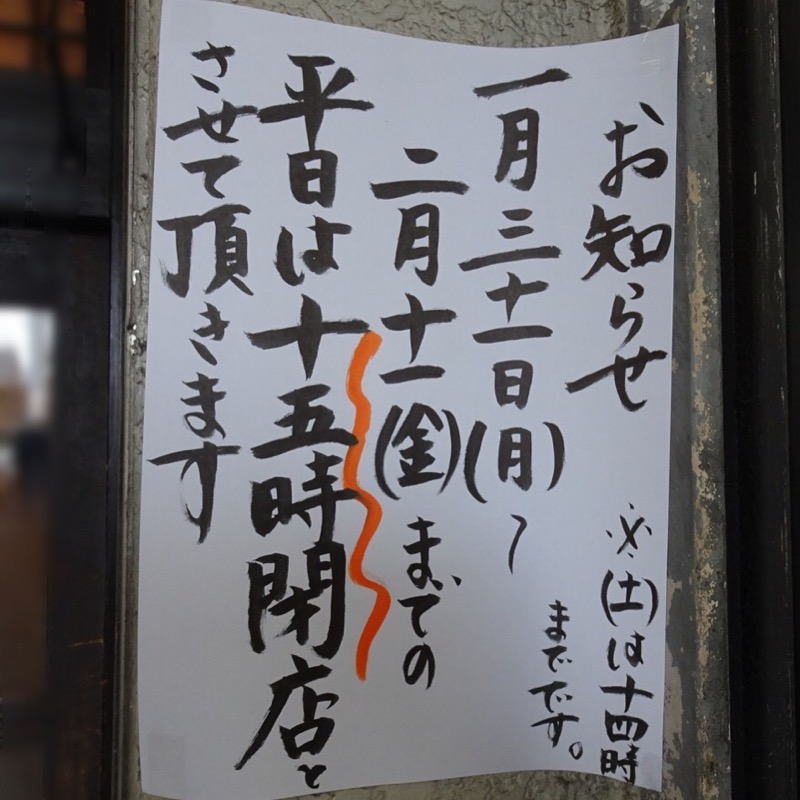 お知らせ
※(土)は十四時
までです。
一月三十一日(月)〜
二月十一(金)までの
平日は十五時閉店と
させて頂きます